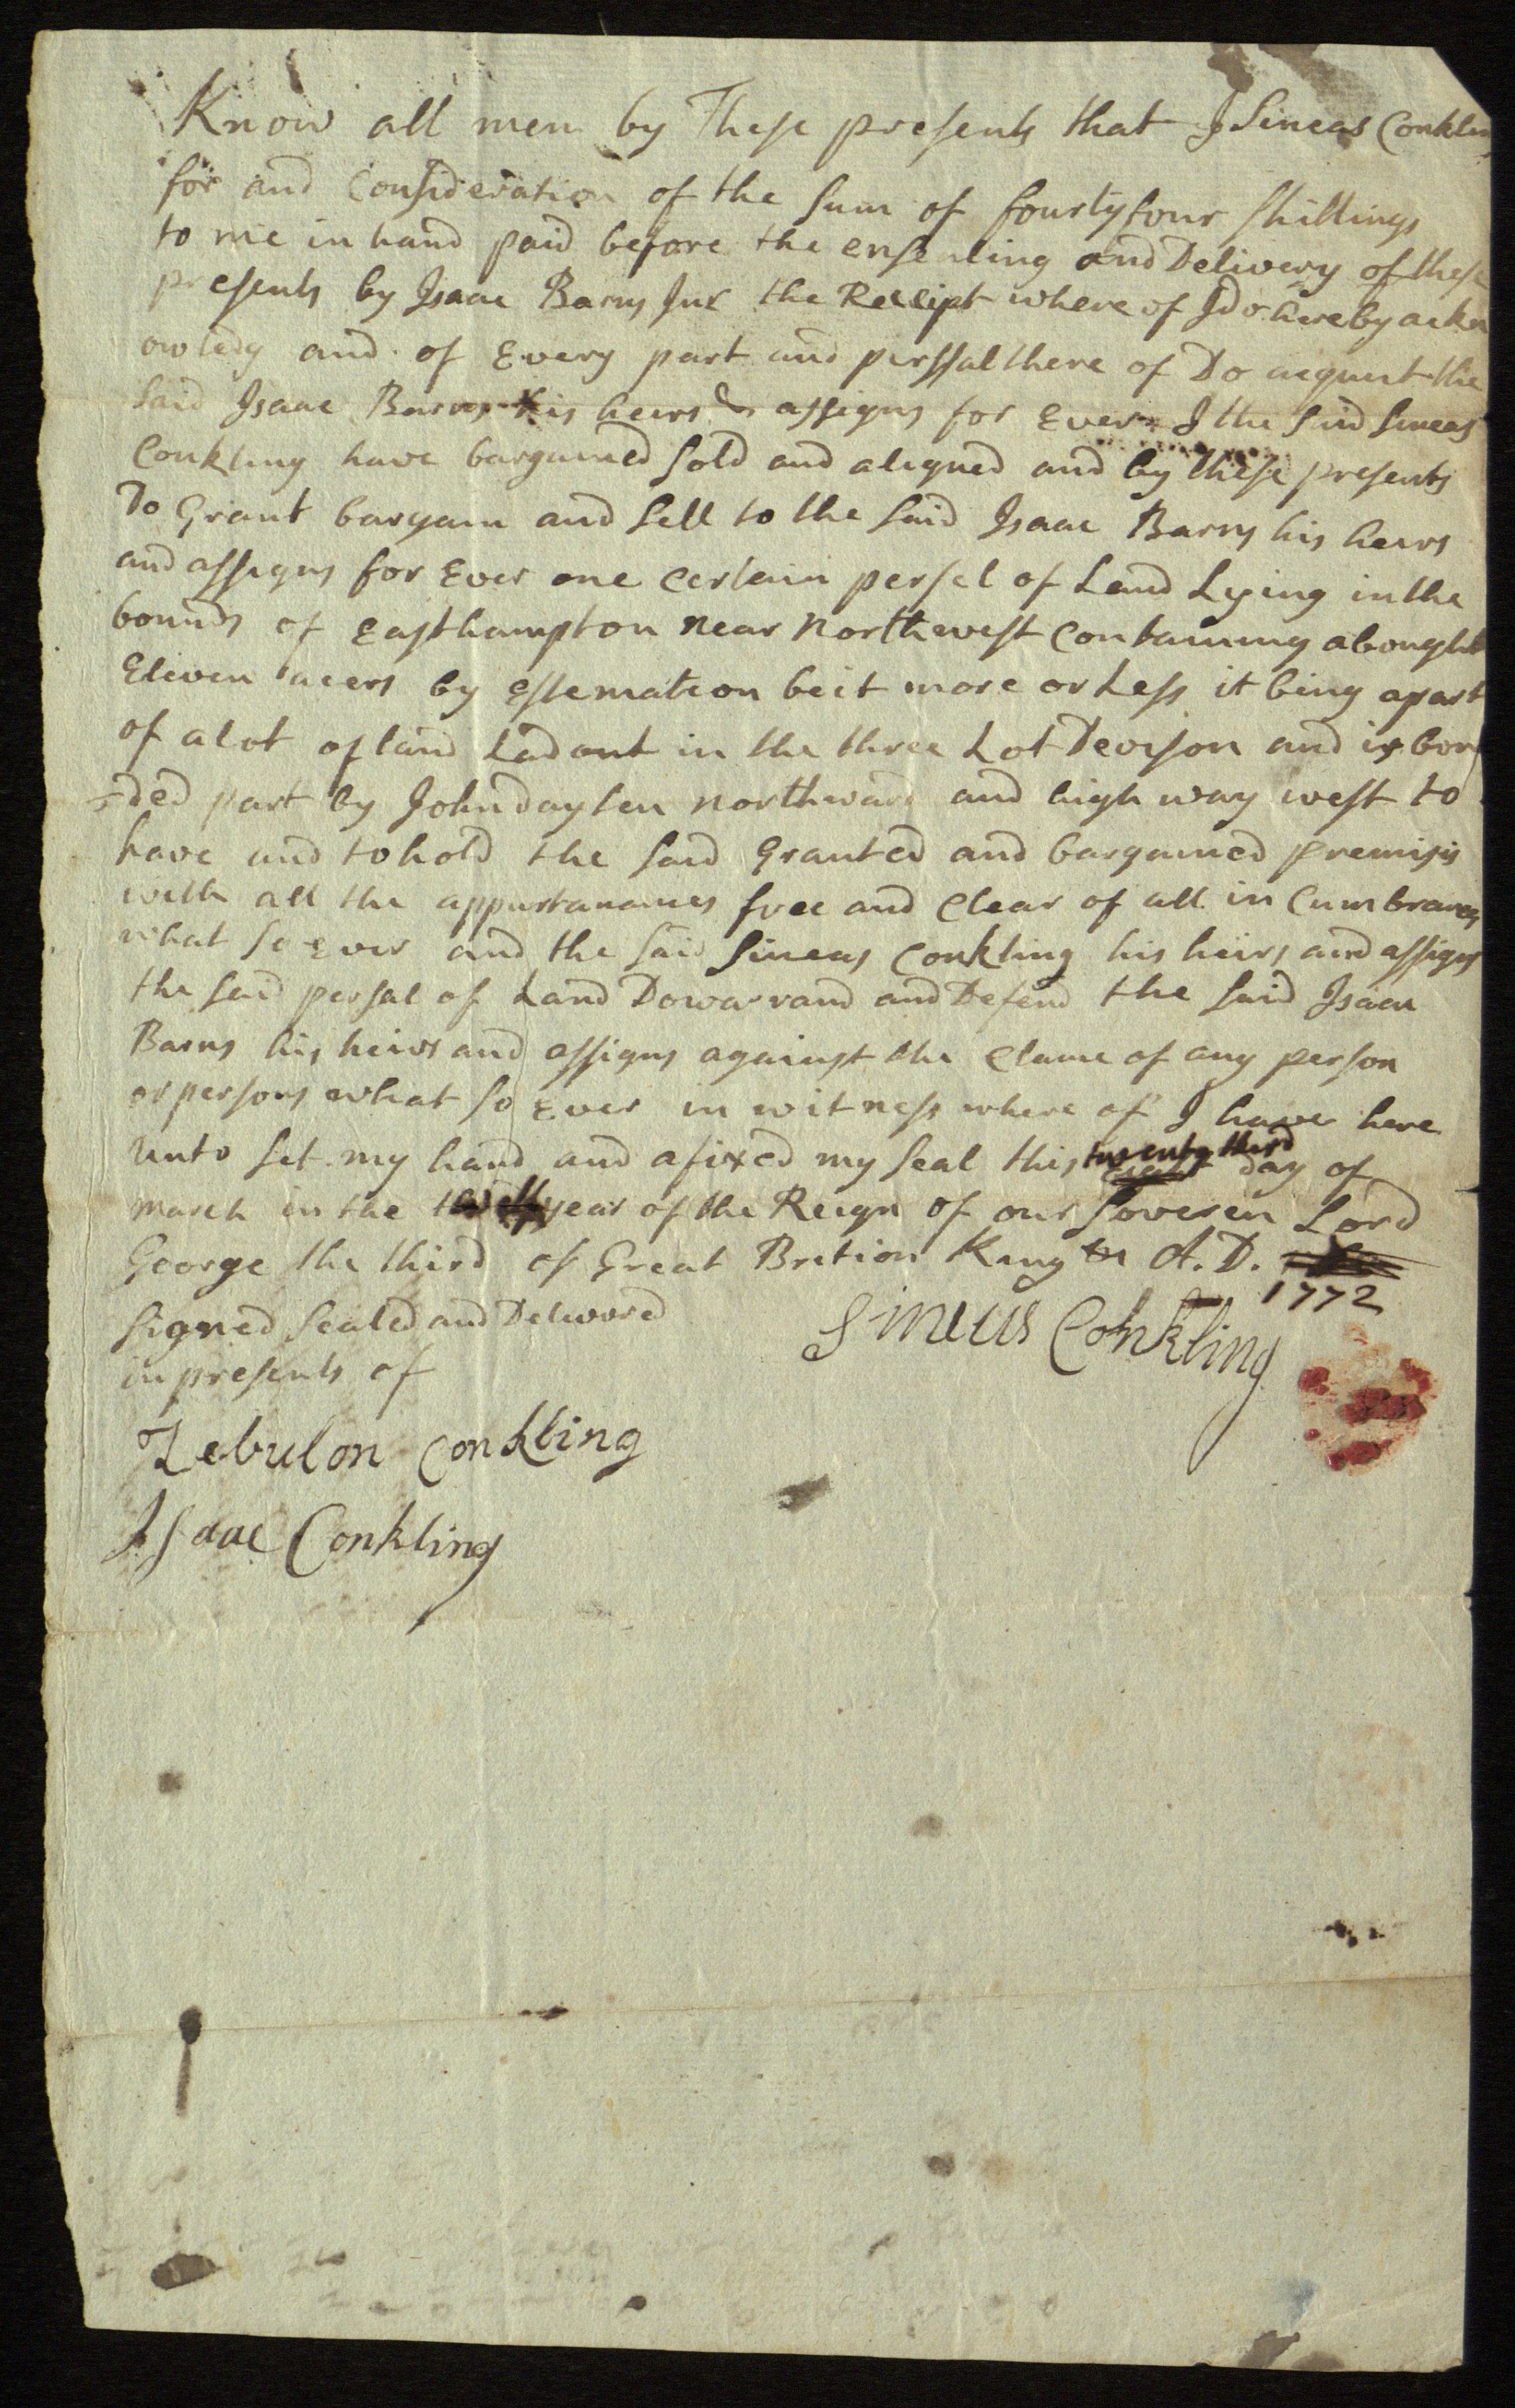 Know all men by These presents that I Sineas Conkling
for and Consideration of the Sum of fourtyfour Shillings
to me in hand paid before the ensealing and Delivery of these
presents by Isaac Barns Jur the Receipt where of I do hereby ackn
owledg and of Every part and perssal there of Do acquut the
Said Isaac Barns his heirs & assigns for Ever I the Said Sineas
Conkling have bargained Sold and aligned and by these presents
Do Grant bargain and Sell to the Said Isaac Barns his heirs
and assigns for Ever one certain persel of Land Lying in the
bounds of Easthampton near Northwest Containing abought
Eleven acers by estemation beit more or Less it being apart
of a lot of land Lad out in the three Lot Devison and is boun
=ded part by John dayten northward and high way west to
have and to hold the Said Granted and bargained premisis
with all the appurtanances free and Clear of all in Cumbrances
what So Ever and the Said Sineas Conkling his heirs and assigns
the Said persal of Land Do warrand and Defend the Said Isaac
Barns his heirs and assigns against the Clame of any person
or persons what So Ever in witness where of I have here
unto Set my hand and afixed my Seal this twenty third day of
march in the year of the Reign of our Soveren Lord
George the third of Great Brition King A.D.
1772
Signed Sealed and Delivored
in presents of
Sineas Conkling
Zebulon Conkling
Isaac Conkling